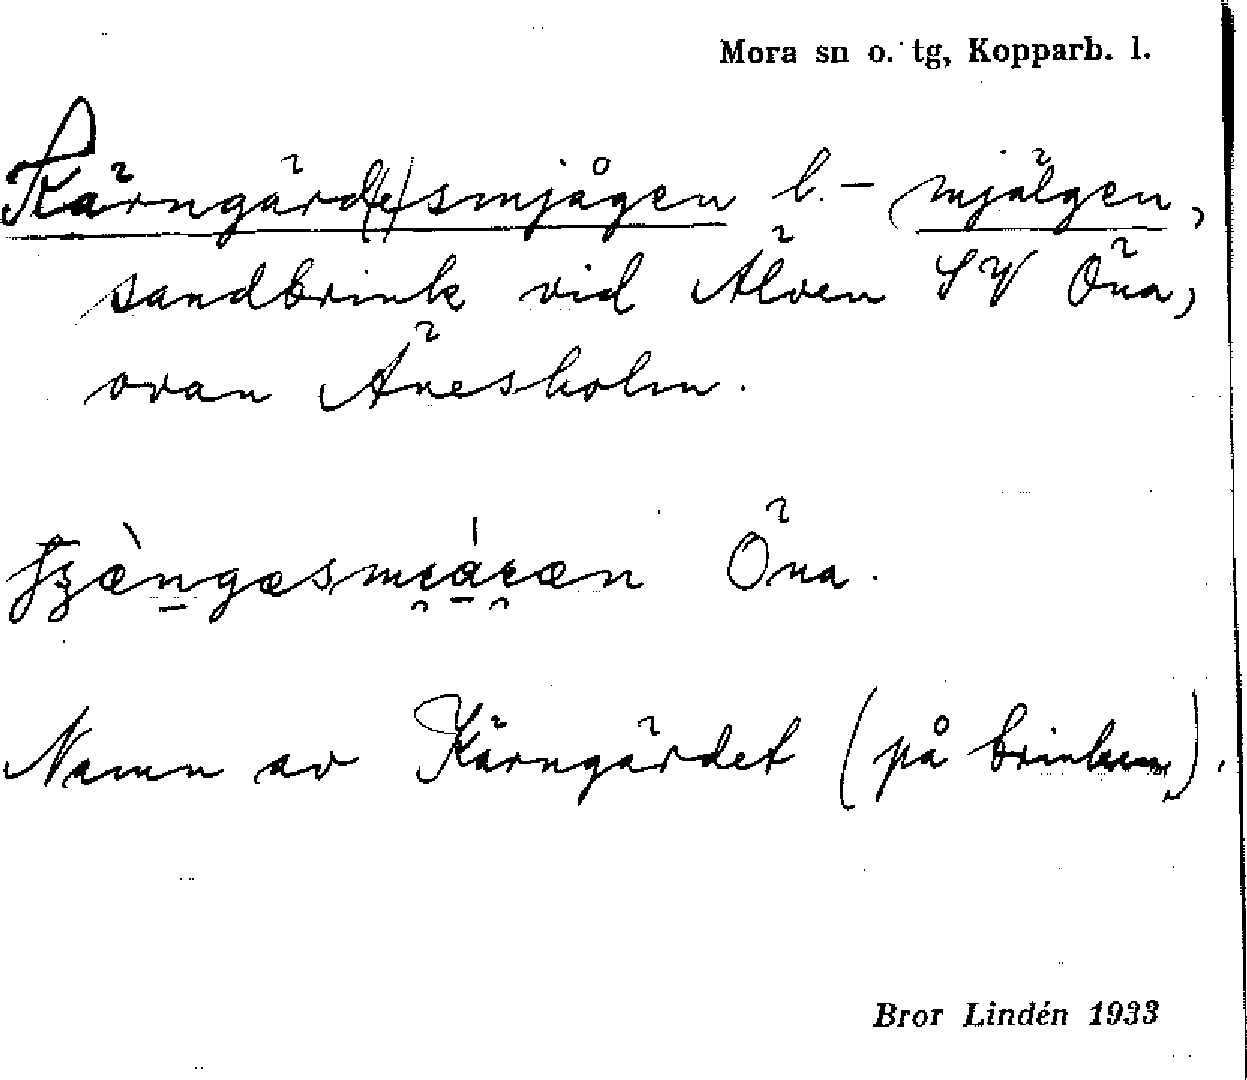 Mora sn o. tg, Kopparb. l.
Kärngärd(e)smjågen l. -mjälgen,
sandbrink vid Älven SV Öna,
ovan Änesholm.
Öna.
Namn av Kärngärdet (på brinken).
Bror Lindén 1933